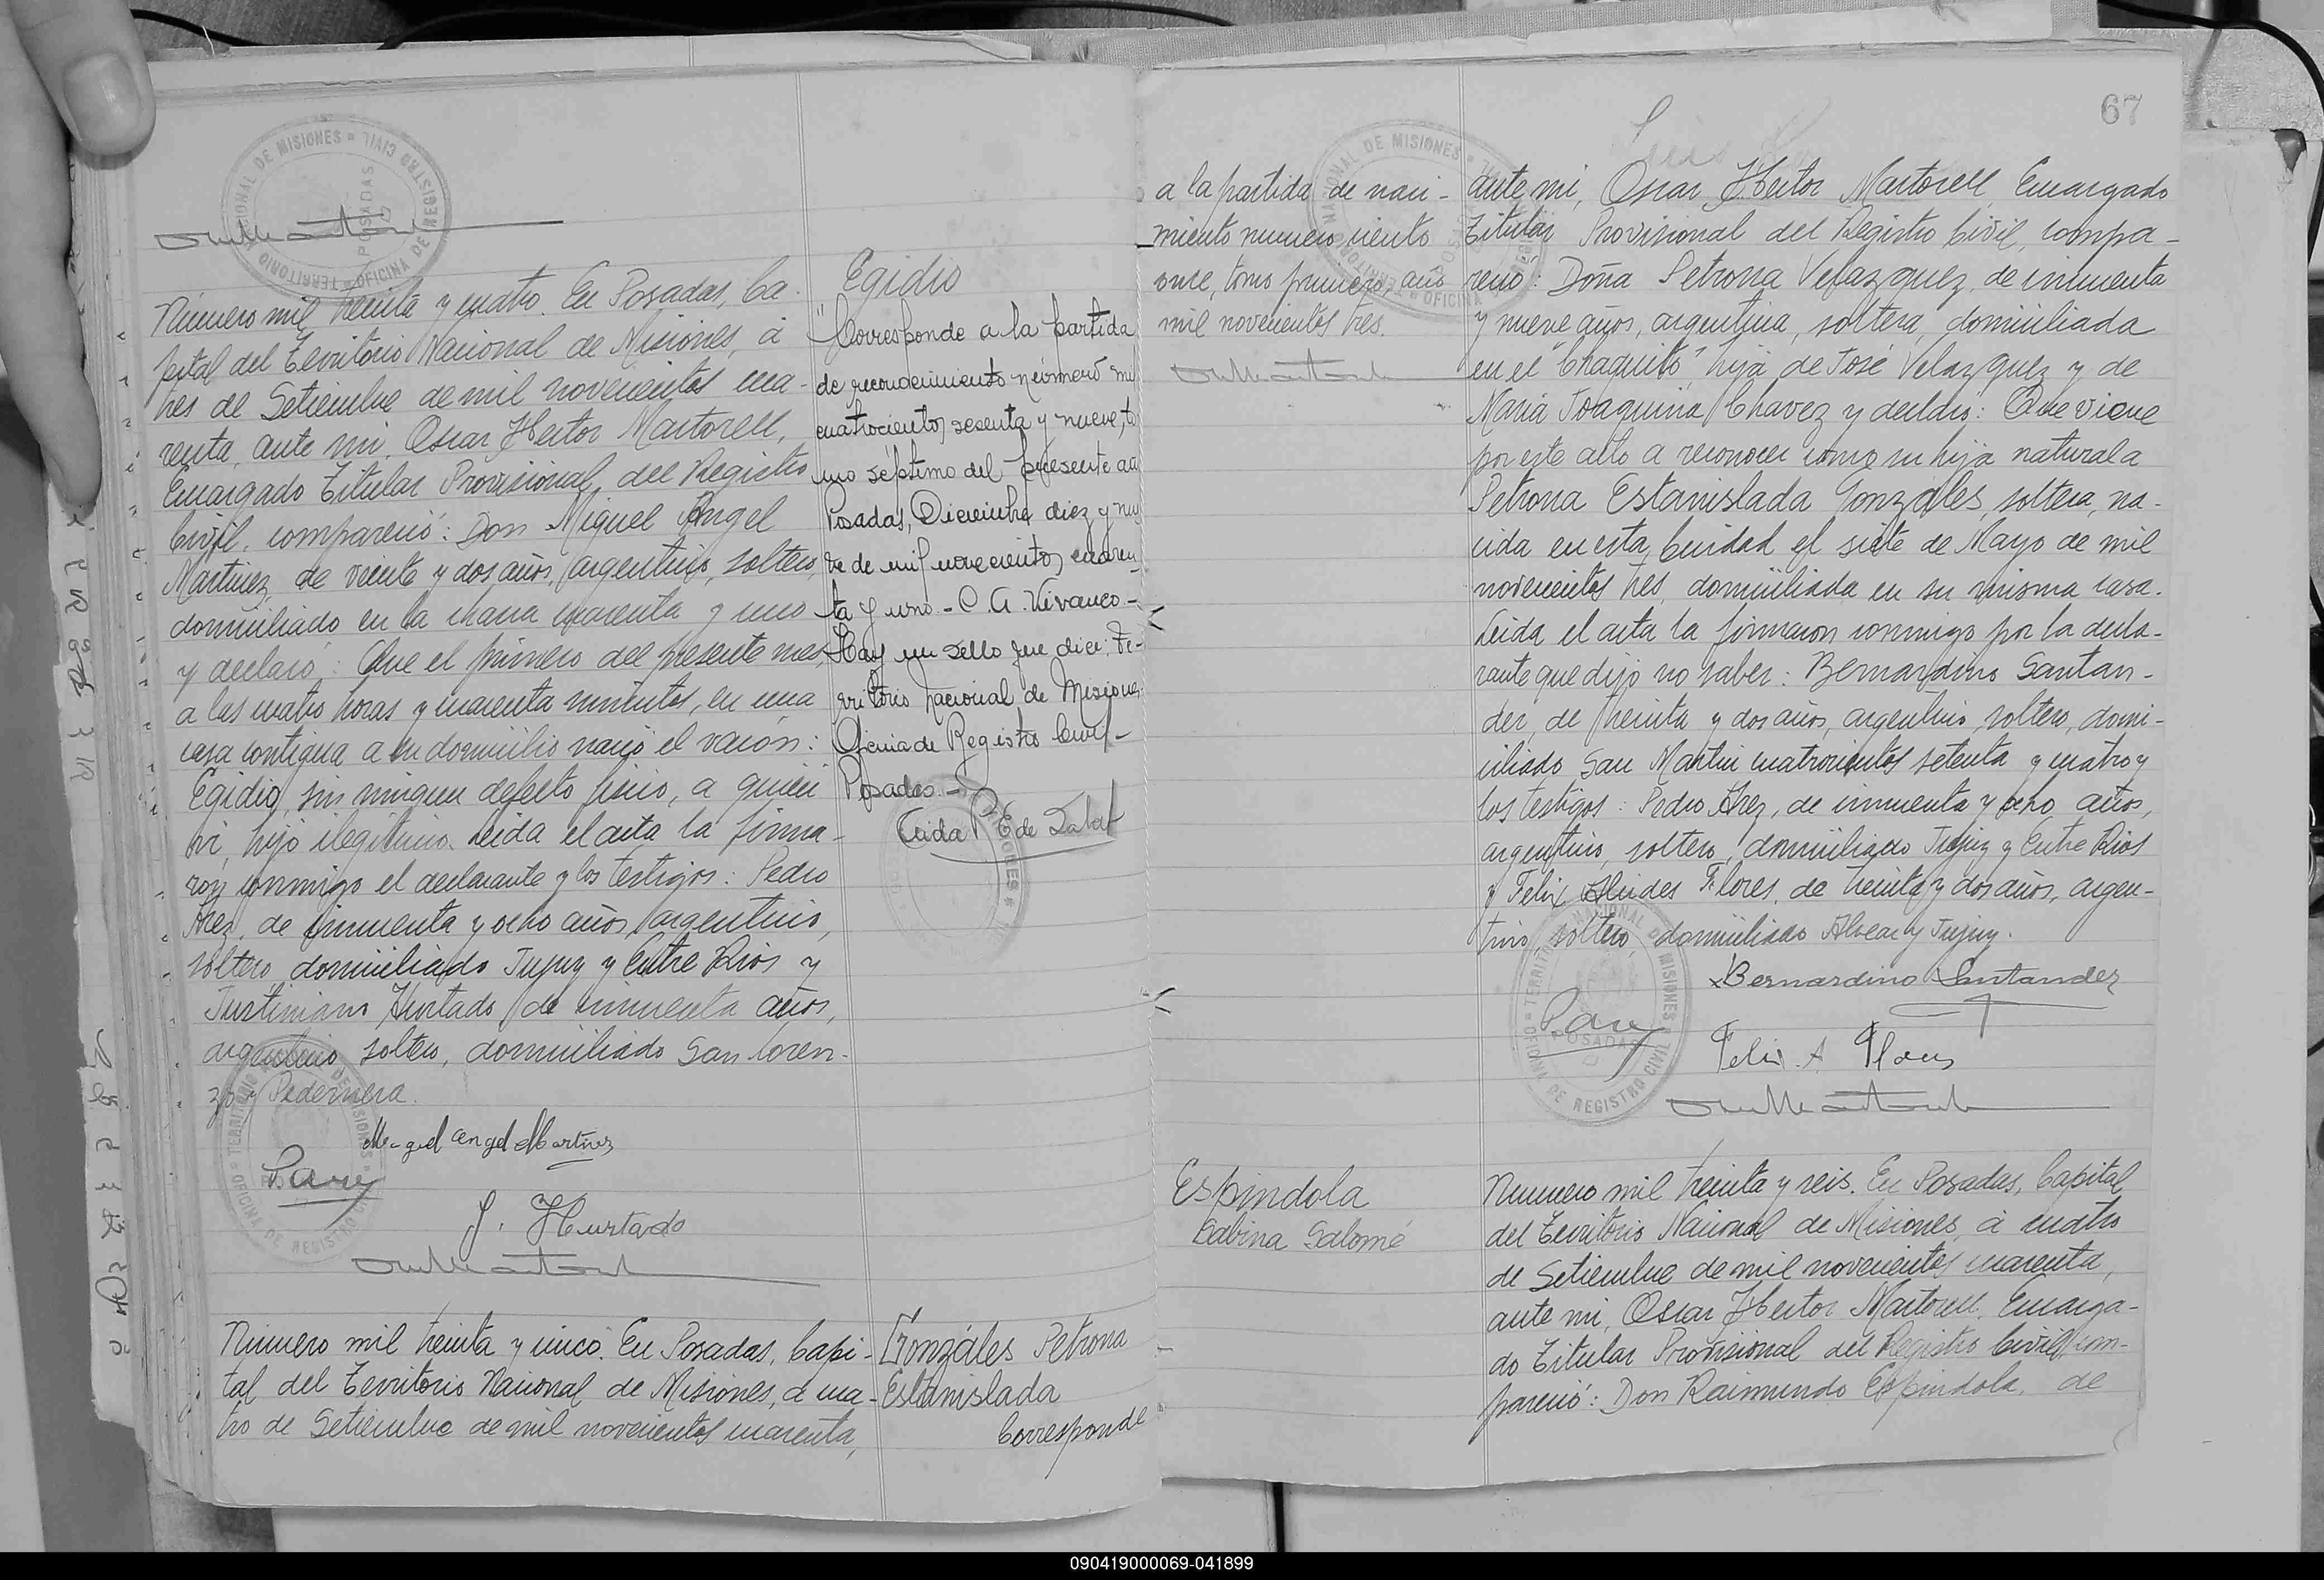 Número mil treinta y cuatro. En Posadas, Ca-
pital del Territorio Nacional de Misiones, á
tres de Setiembre de mil novecientos cua-
renta, ante mi, Oscar Hector Martorell,
Encargado Titular Provisional, del Registro
Civil, compareció: Don Miguel Angel
Martinez, de veinte y dos años, argentino, soltero,
domiciliado en la chacra cuarenta y uno
y declaró: Que el primero del presente mes,
a las cuatro horas y cuarenta minutos, en una
casa contigua a su domicilio nació el varón:
Egidio, sin ningun defecto fisico, a quien
vi, hijo ilegitimo. Leida el acta la firma-
ron conmigo el declarante y los testigos: Pedro
Arez, de cincuenta y ocho años, argentino,
soltero, domiciliado Jujuy y Entre Rios y
Justiniano Hurtado de cincuenta años,
argentino, soltero, domiciliado San Loren-
zo y Pedernera.
Miguel Angel Martinez
J. Hurtado
Egidio
"Corresponde a la partida
de reconocimiento número mil
cuatrocientos sesenta y nueve, to
mo séptimo del presente año
Posadas, Diciembre diez y nue
ve de mil novecientos cuaren
ta y uno - C. A. Vivanco -
Hay un sello que dice: Te-
rritorio Nacional de Misiones
Oficina de Registro Civil -
Posadas. -
TERRITORIO NACIONAL DE MISIONES
OFICINA DE REGISTRO CIVIL
POSADAS
Número mil treinta y cinco. En Posadas, Capi-
tal del Territorio Nacional de Misiones, á cua-
tro de Setiembre de mil novecientos cuarenta,
Gonzáles Petrona
Estanislada
Corresponde
67
a la partida de naci-
miento numero ciento
once, tomo primero, año
mil novecientos tres.
ante mi, Oscar Hector Martorell, Encargado
Titular Provisional del Registro Civil, compa-
reció: Doña Petrona Velazquez, de cincuenta
y nueve años, argentina, soltera, domiciliada
en el "Chaquito" hija de José Velazquez y de
Maria Joaquina Chavez y declaró: Que viene
por este acto a reconocer como su hija natural a
Petrona Estanislada Gonzales, soltera, na-
cida en esta Ciudad el siete de Mayo de mil
novecientos tres, domiciliada en su misma casa.
Leida el acta la firmaron conmigo por la decla-
rante que dijo no saber: Bernardino Santan-
der, de treinta y dos años, argentino, soltero, domi-
ciliado San Martin cuatrocientos setenta y cuatro y
los testigos: Pedro Arez, de cincuenta y ocho años,
argentino, soltero, domiciliado Jujuy y Entre Rios
y Felix Alcides Flores, de treinta y dos años, argen-
tino, soltero, domiciliado Alvear y Jujuy.
Bernardino Santander
Felix A Flores
TERRITORIO NACIONAL DE MISIONES
OFICINA DE REGISTRO CIVIL
POSADAS
Espindola
Sabina Salomé
Numero mil treinta y seis. En Posadas, Capital
del Territorio Nacional de Misiones, á cuatro
de Setiembre de mil novecientos cuarenta,
ante mi, Oscar Hector Martorell, Encarga-
do Titular Provisional del Registro Civil, com-
pareció: Don Raimundo Espindola, de
090419000069-041899